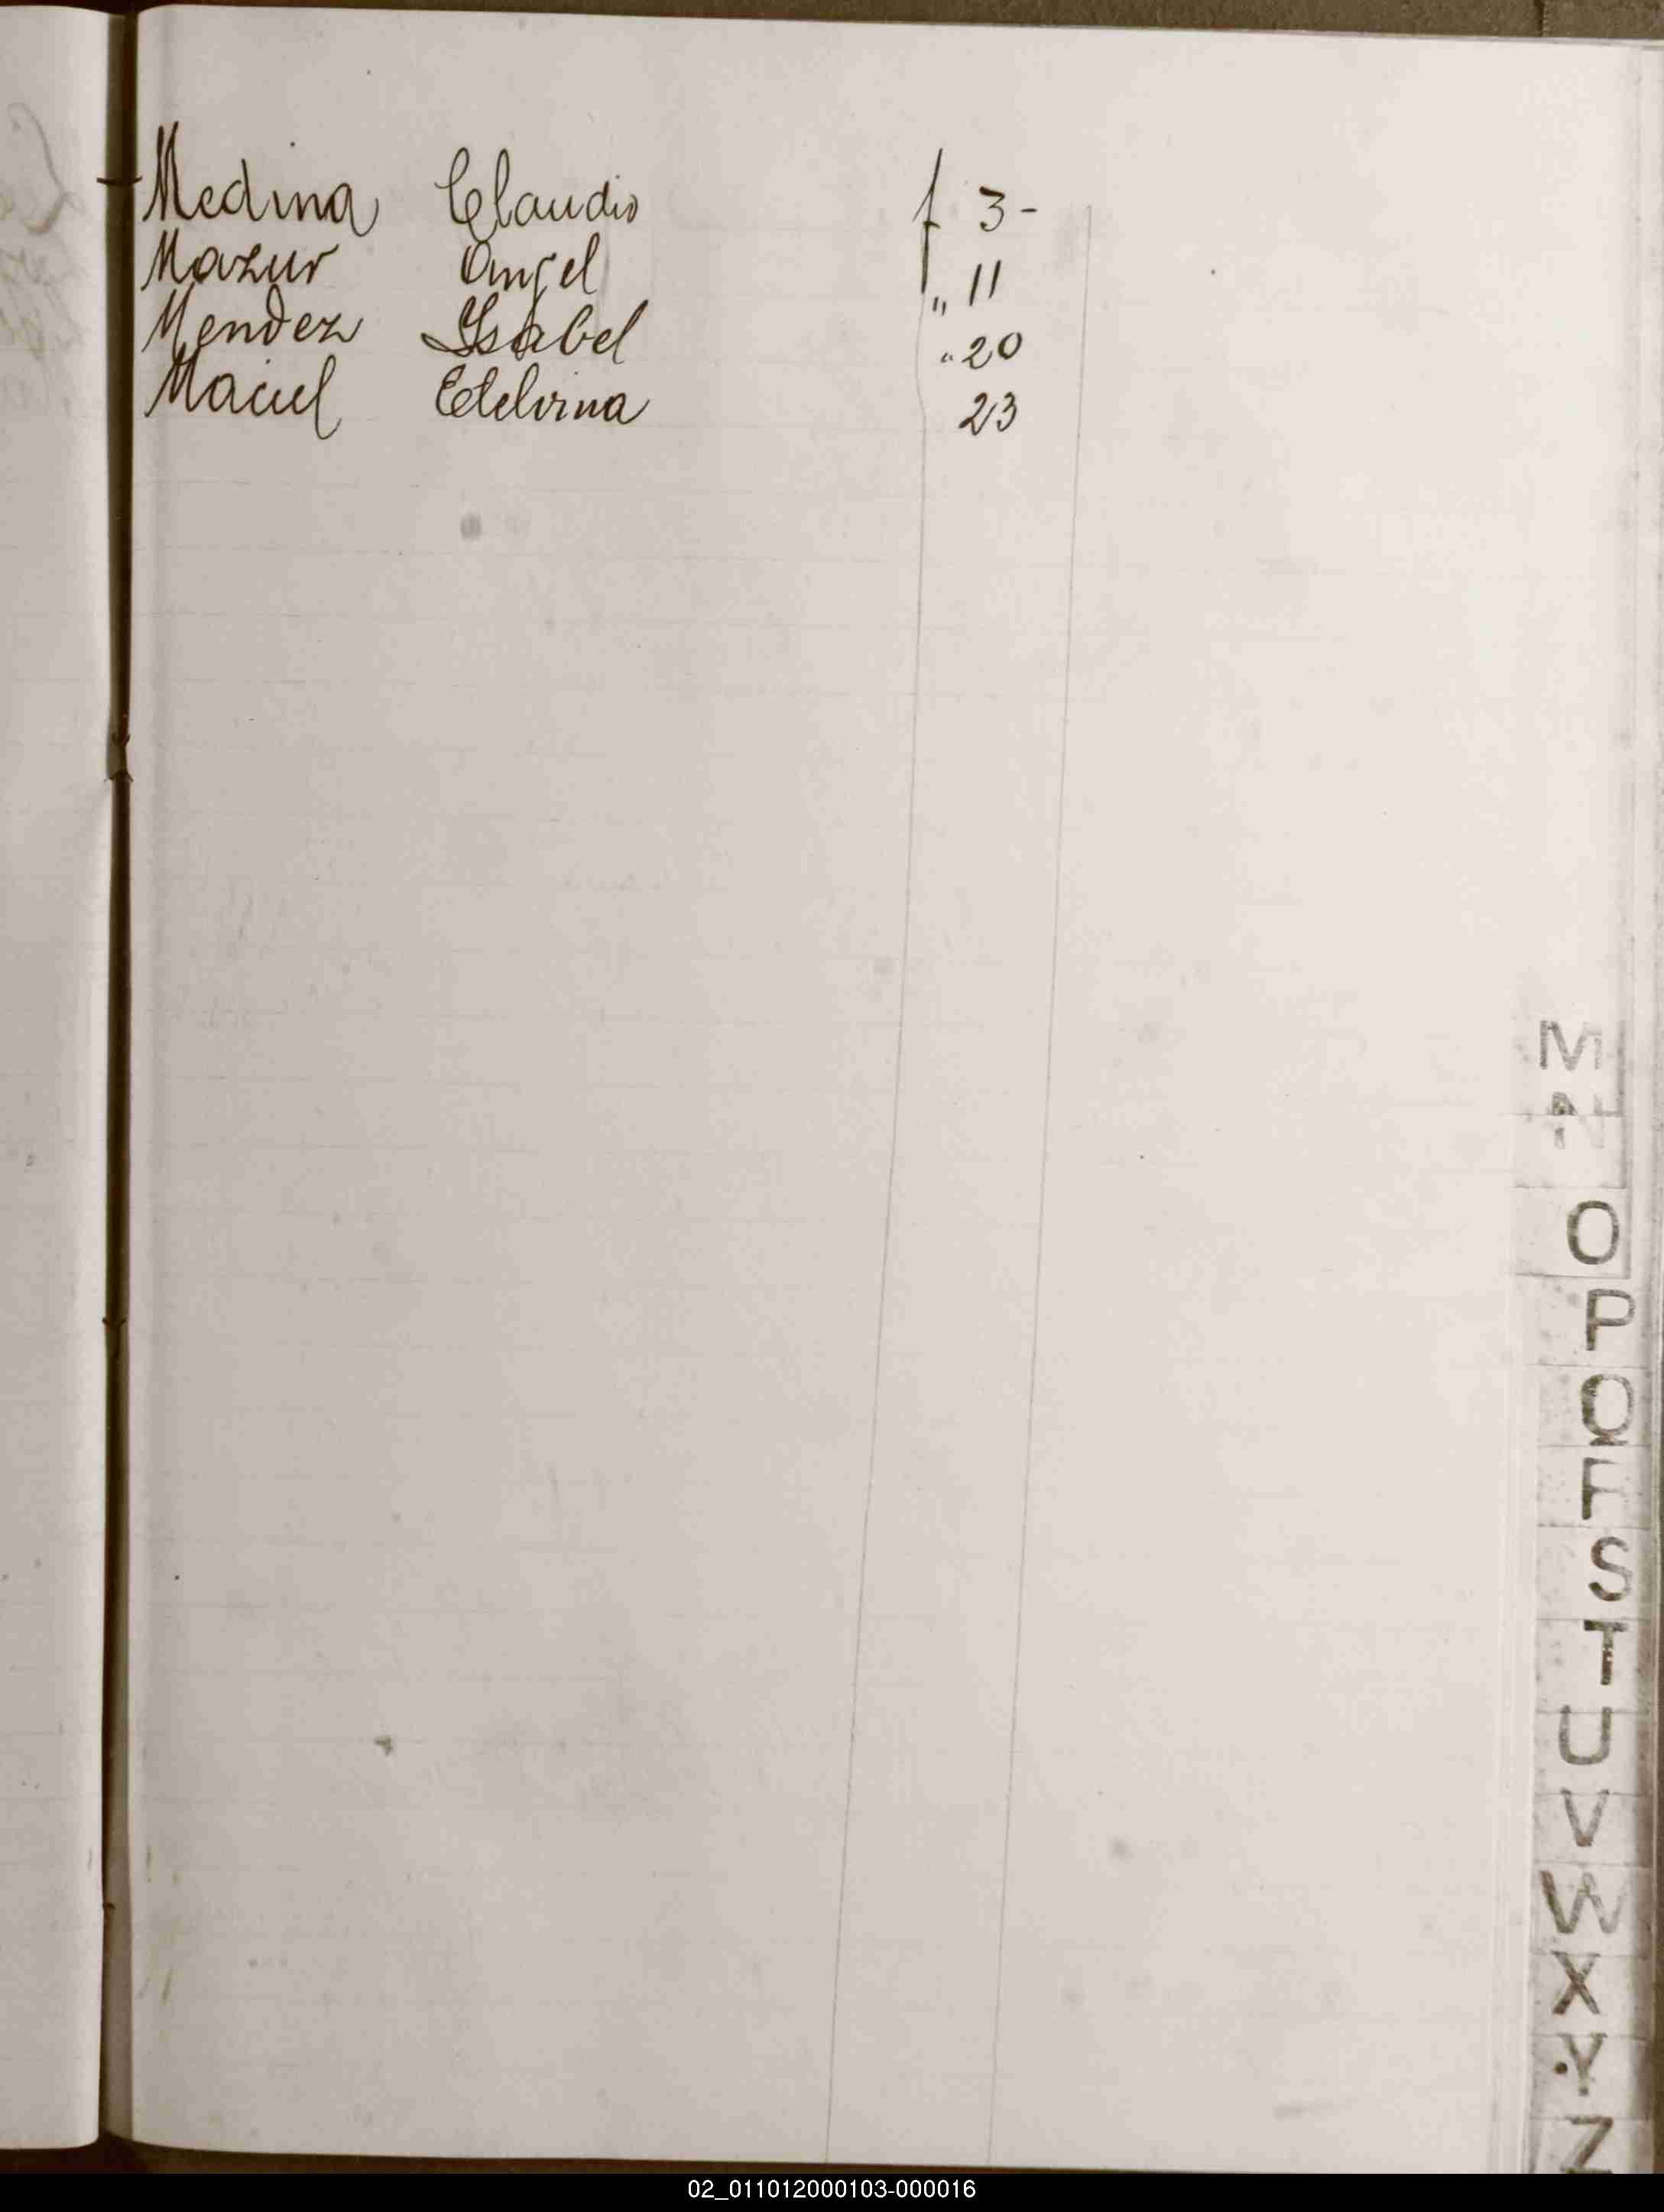 Medina Claudio f 3-
Mazur Angel „ 11
Mendez Ysabel " 20
Maciel Etelvina 23
M
N
O
P
Q
S
T
U
V
W
X
Y
Z
02_011012000103-000016